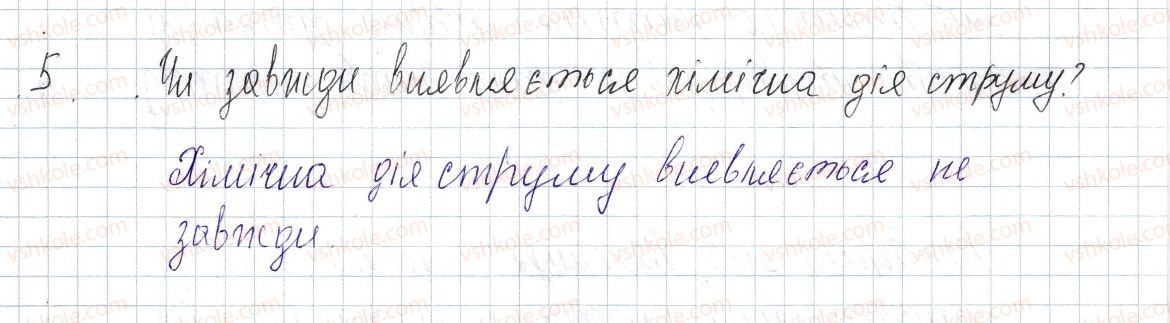 5. Чи завжди виявляється хімічна дія струму?
Хімічна дія струму виявляється не
завжди.